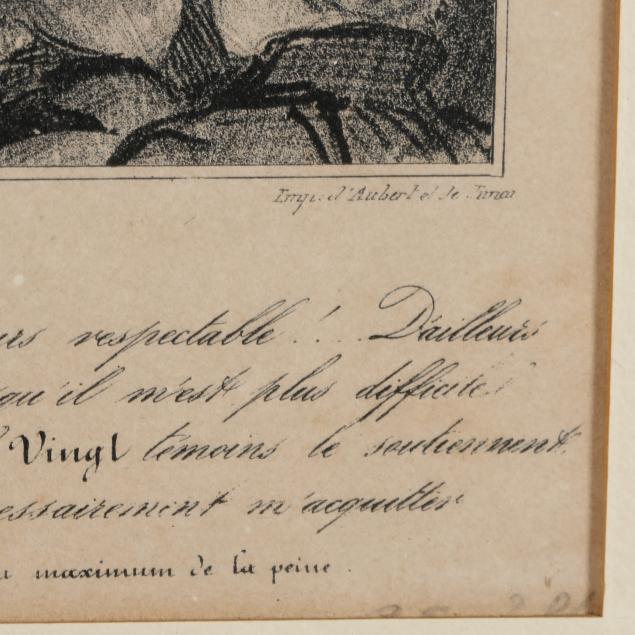 Imp. d'Aubert et de Junca
urs respectable ! .. D'ailleurs
qu'il m'est plus difficile
Vingt témoins le soutiennent.
essairement m'acquitter
maximum de la peine.